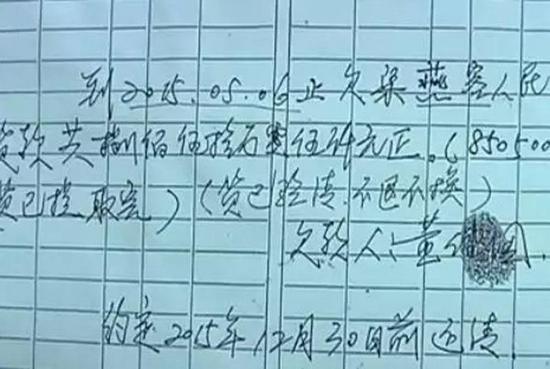 到2015.05.06止欠梁燕容人民
货款共捌佰伍拾万零伍仟元正。(850500
货已提取完)(货已验清.不退不换)
欠款人:黄
约定2015年12月30日前还清.